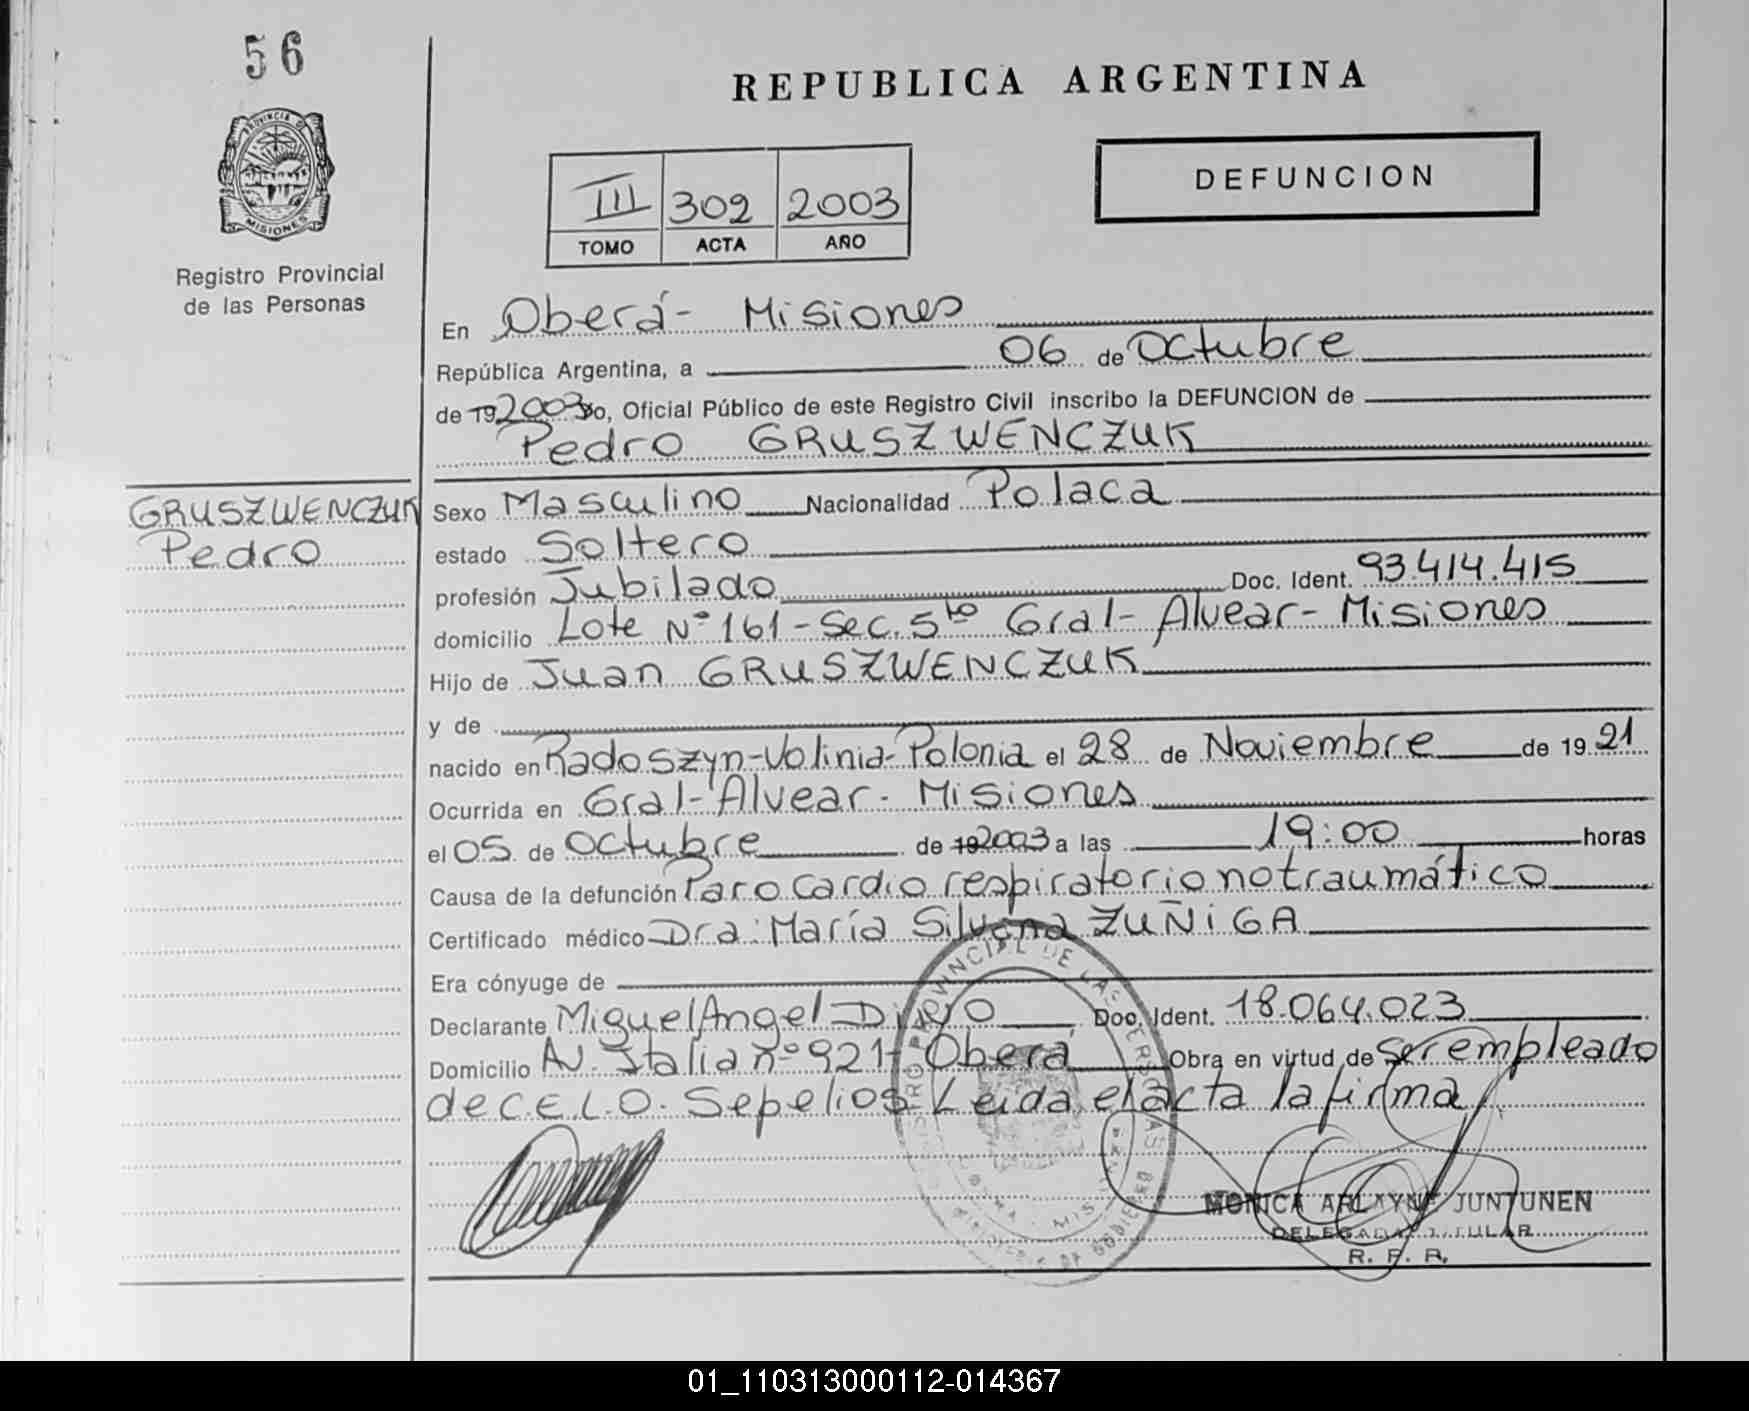 56
REPUBLICA ARGENTINA
PROVINCIA DE
MISIONES
Registro Provincial
de las Personas
DEFUNCION
III 302 2003
TOMO ACTA AÑO
En Oberá- Misiones
República Argentina, a 06 de Octubre
de 192003 Yo, Oficial Público de este Registro Civil inscribo la DEFUNCION de
Pedro GRUSZWENCZUK
GRUSZWENCZUK
Pedro
Sexo Masculino Nacionalidad Polaca
estado Soltero
profesión Jubilado Doc. Ident. 93.414.415
domicilio Lote Nº 161-Sec. 5to Gral- Alvear- Misiones
Hijo de Juan GRUSZWENCZUK
y de
nacido en Radoszyn-Volinia-Polonia el 28 de Noviembre de 1921
Ocurrida en Gral-Alvear- Misiones
el 05 de Octubre de 192003 a las 19:00 horas
Causa de la defunción Paro cardio respiratorio no traumático
Certificado médico Dra: María Silvana ZUÑIGA
Era cónyuge de
Declarante Miguel Angel Doc. Ident. 18.064.023
Domicilio Av. Italia nº 921- Oberá Obra en virtud de ser empleado
de C.E.L.O. Sepelios Leida el acta la firma
PROVINCIAL DE LAS PERSONAS
MONICA ARLAYNE JUNTUNEN
DELEGADA TITULAR
R. P. P.
01_110313000112-014367